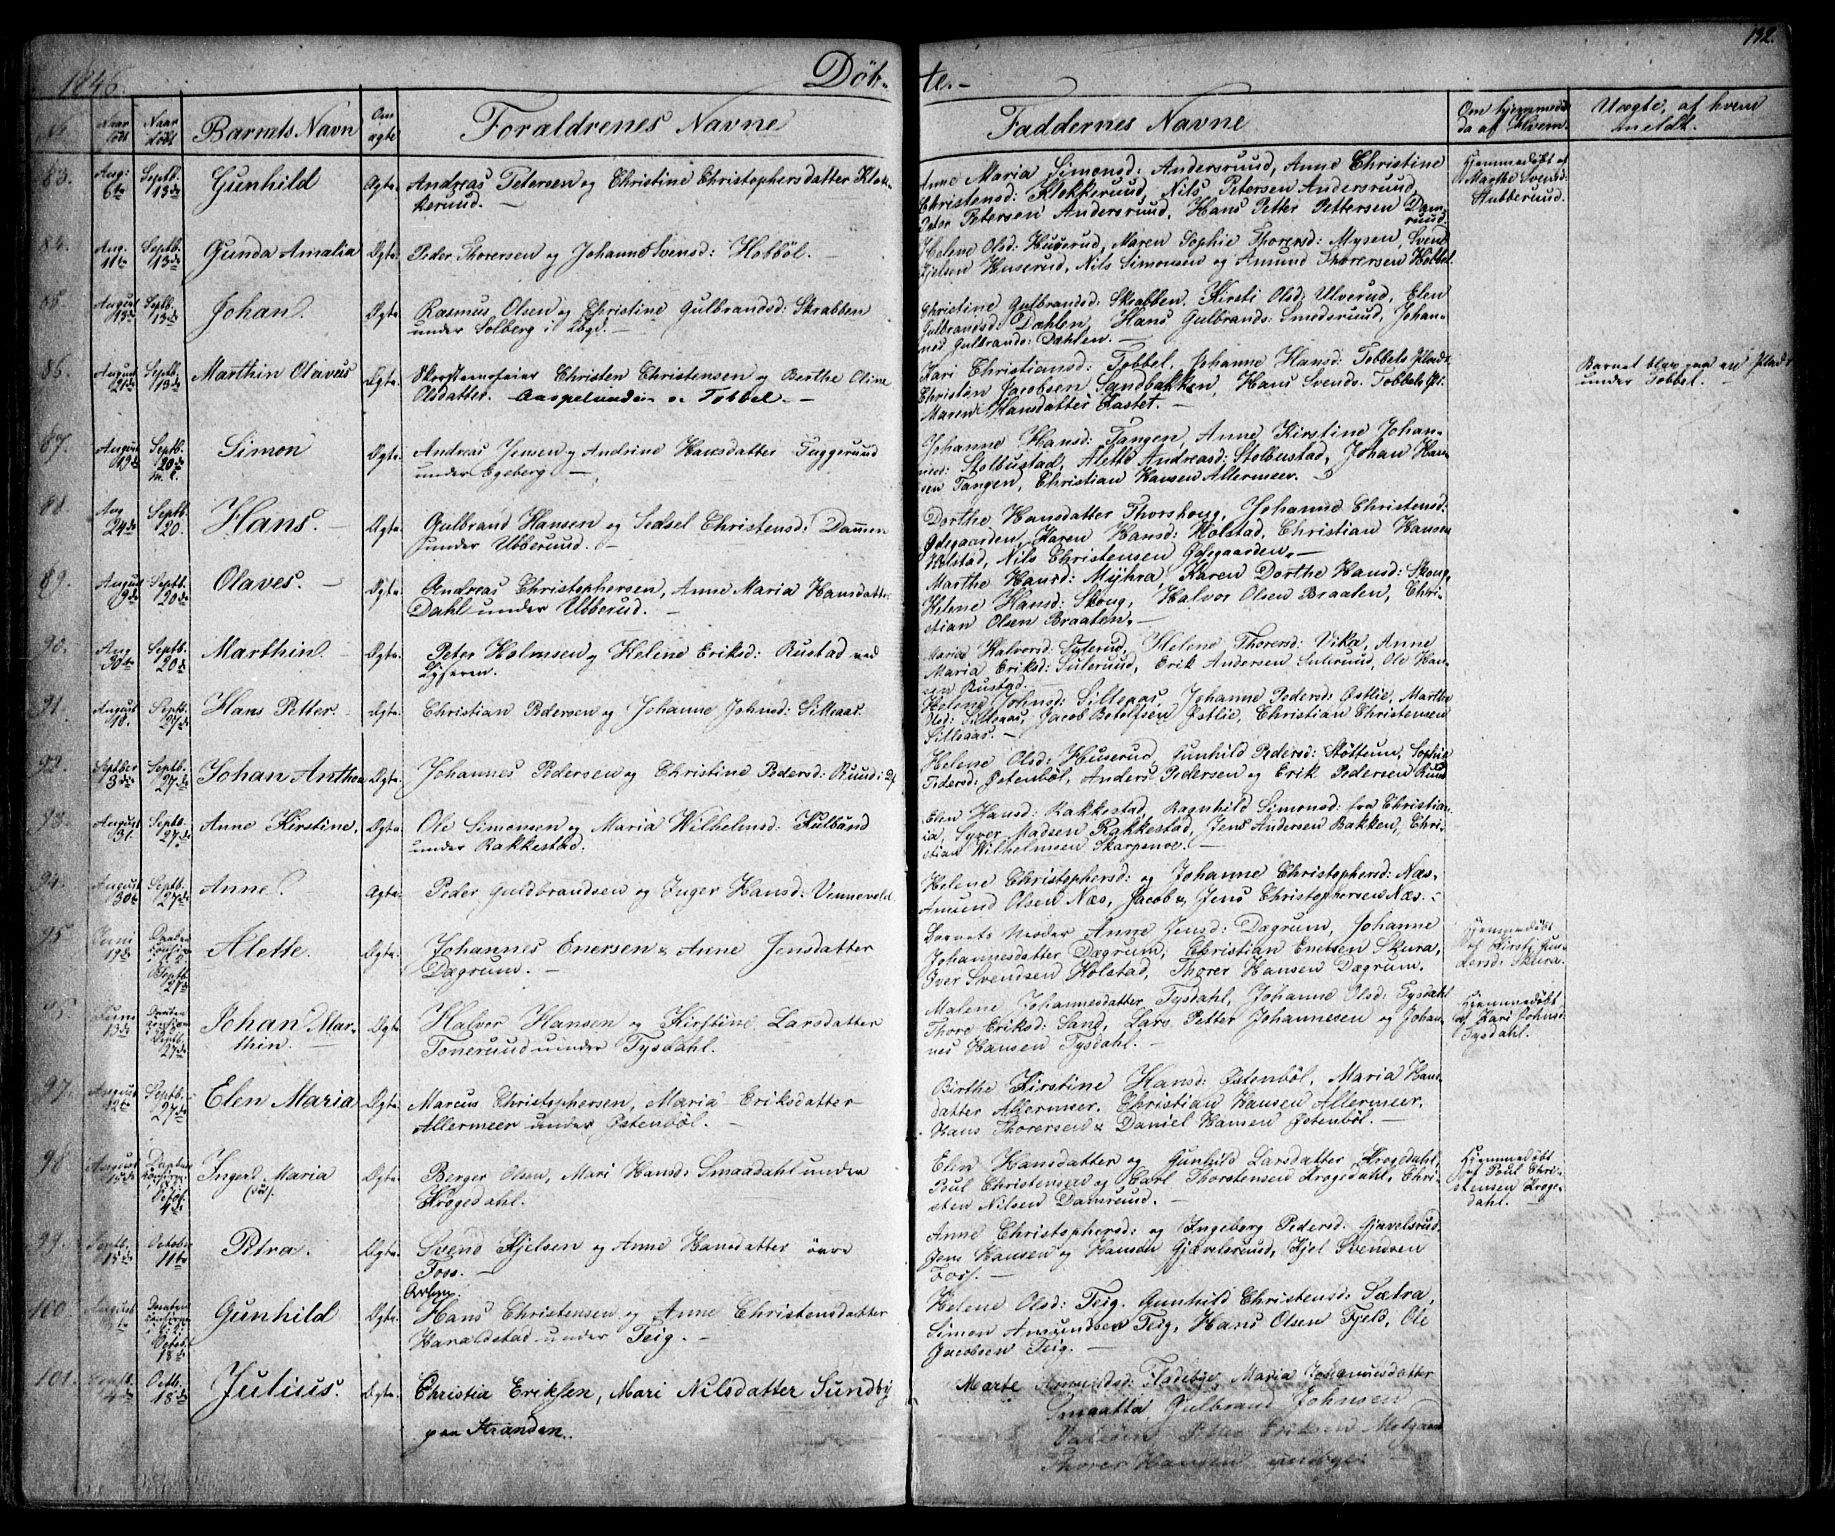 1846.
Döb-
te.-
192.
No
Naar født
Naar döbt
Barnets Navn
Om ægte
Forældrenes Navne
Faddernes Navne
Om hjemmedöbt, da af Hvem.
Uægte, af hvem meldt.
83. Aug: 6te Septb. 13de Gunhild Ægte Andreas Petersen og Christine Christophersdatter Klok-
kerud. —
Anne Maria Simensd: Andersruud, Anne Christine
Christensd: Klokkeruud, Nils Petersen Andersruud,
Peter Petersen Andersruud, Hans Petter Pettersen Dam-
ruud.
Hjemmedöbt af
Marthe Svensd:
Stubberuud.
84. Aug. 11te Septb. 13de Gunda Amalia Ægte. Peder Thorersen og Johanne Svensd: Hobböl. —
Helene Olsd: Huserud, Maren Sophie Thorersd: Mysen, Svend
Kjelsen Huserud, Nils Simensen og Amund Thorersen Hobböl.
85. August 13de Septb. 13de Johan. Ægte. Rasmus Olsen og Christine Gulbrandsd: Skrabben
under Solberg i
Christine Gulbrandsd: Skrabben. Kirsti Olsd: Ulverud, Elen
Gulbrandsd: Dæhlen, Hans Gulbrands: Smedsruud, Johan-
nes Gulbrands: Dæhlen. —
86. August 21de Septb. 13de Marthin Olaves Ægte. Skorsteensfeier Christen Christensen og Berthe Oline
Olsdatter.
Tobbel. —
Kari Christiansd: Tobbel. Johanne Hansd: Tobbels
Christen Jacobsen Sandbakken, Hans Svends. Tobbels
Maren Hansdatter Kastet. —
Barnet blev paa en
under Tobbel. —
87. August 19de Septb. 20de Simon Ægte. Andreas Jensen og Andrine Hansdatter Tuggerund
under Egeberg —
Johanne Hansd: Tangen, Anne Kirstine Johan-
nesd: Stolbustad, Alette Andreasd: Stolbustad, Johan Han-
sen Tangen, Christian Hansen Allermeer. —
88. Aug 24de Septb. 20. Hans. — Ægte. Gulbrand Hansen og Sidsel Christensd: Dammen
under Ubberuud. —
Dorthe Hansdatter Thorskoug, Johanne Christensd:
Ödegaarden, Karen Hansd: Holstad, Christian Hansen
Holstad, Nils Christensen Ödegaarden. —
89. August 9de Septb. 20de Olaves. — Ægte. Andreas Christophersen, Anne Maria Hansdatter
Dahl under Ubberud. —
Marthe Hansd: Mÿhra, Karen Dorthe Hansd: Skoug,
Helene Hansd: Skoug, Halvor Olsen Braaten, Chri-
stian Olsen Braaten. —
90. Aug 30te Septb. 20de Marthin. — Ægte. Peter Holmsen og Helene Eriksd: Rustad ved
Lyseren.
Maries Halvorsd: Sulerud, Helene Thorersd: Vika, Anne
Maria Eriksd: Suleruud, Erik Andersen Suleruud, Ole Han-
sen Rustad.
91. August 10. Septb. 27de Hans Petter. — Ægte. Christian Pedersen og Johanne Johnsd: Silleaas.
Helene Johnsd: Silleaas, Johanne Pedersd: Östlie, Marthe
Olsd: Silleaas, Jacob Botolfsen Östlie, Christian Christensen
Silleaas. —
92. Septber 3die Septb. 27de Johan Anthon Ægte. Johannes Pedersen og Christine Pedersd: Ruud:
Helene Olsd: Huserud, Gunhild Pedersd: Stöttum, Sophie
Pedersd: Östenböl, Anders Pedersen og Erik Pedersen Ruud
93. August 31. Septb. 27de Anne Kirstine. Ægte. Ole Simensen og Maria Wilhelmsd: Kulbund
under Rakkestad.
Elen Hansd: Rakkestad, Ragnhild Simonsd: fra Christia-
nia, Syver Madsen Rakkestad, Jens Andersen Bakken, Chri-
stian Wilhelmsen Skarpenoe. —
94. August 30te Septb. 27de Anne. Ægte. Peder Guldbrandsen og Inger Hansd: Vennevold.
Helene Christophersd: og Johanne Christophersd: Næs.
Amund Olsen Næs, Jacob & Jens Christophersen Næs. —
95. Juni 17de Septb. 27de Alette. Ægte. Johannes Enersen & Anne Jensdatter
Dægrum. —
Barnets Moder Anne Jensd: Dægrum, Johanne
Johannesdatter Dægrum, Christian Enersen Skura,
Iver Svendsen Holstad, Thorer Hansen Dægrum.
Hjemmedöbt
af Kirsti Gun-
dersd: Skura.
Juni 13de Septb. 27de Johan Mar-
thin. — Ægte. Halvor Hansen og Kirstine Larsdatter
Toneruud under Tysdahl.
Malene Johannesdatter Tysdahl, Johanne Olsd: Tysdahl
Thore Eriksd: Sand, Lars Petter Johannesen og Johan-
nes Hansen Tysdahl. —
Hjemmedöbt
af Kari Johnsd:
Tysdahl.
97. August 12te Septb. 27de Elen Maria Ægte. Marcus Christophersen, Maria Eriksdatter
Allermeer under Östenböl. —
Birthe Kirstine Hansd: Östenböl, Maria Hans-
datter Allermeer, Christian Hansen Allermeer,
Hans Thorersen & Daniel Hansen Östenböl. —
98 August 15de Octob. 4de Ingerd Maria Ægte. Berger Olsen, Mari Hansd: Smaadahl under
Krogedahl.
Elen Hansdatter og Gunild Larsdatter Krogedahl,
Poul Christensen og Carl Thorstensen Krogedahl, Chri-
sten Nilsen Damruud. —
Hjemmedöbt
af Poul Chri-
stensen Kroge-
dahl. —
99. Septb. 15de October 11te Petra. Ægte. Svend Kjelsen og Anne Hansdatter övre
Foss. —
Anne Christophersd: og Ingeborg Pedersd. Gjavelsrud,
Jens Hansen og Hansen Gjavelsruud, Kjel Svendsen
Foss. —
100 August Octob. 18de Gunhild Ægte. Hans Christensen og Anne Christensdatter
Haraldstad under Teig. —
Helene Olsd: Teig. Gunhild Christensd: Sætra,
Simon Amundsen Teig, Hans Olsen Fjeld, Ole
Jacobsen Teig. —
101. Septb. 4de Octb. 18de Julius. Ægte. Christia Eriksen, Mari Nilsdatter Sundby
paa Stranden.
Marte Amundsd: Fladebye, Maria Johannesdatter
Smaatta, Gulbrand Johnsen
Petter Eriksen
Thorer Hansen